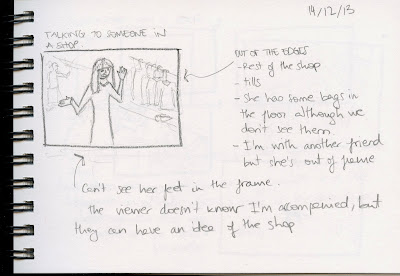 14/12/13
TALKING TO SOMEONE IN
A SHOP
OUT OF THE EDGES
- Rest of the shop
- tills
- She has some bags in
the floor although we
don't see them.
- I'm with another friend
but she's out of frame
Can't see her feet in the frame.
The viewer doesn't know I'm accompanied, but
they can have an idea of the shop